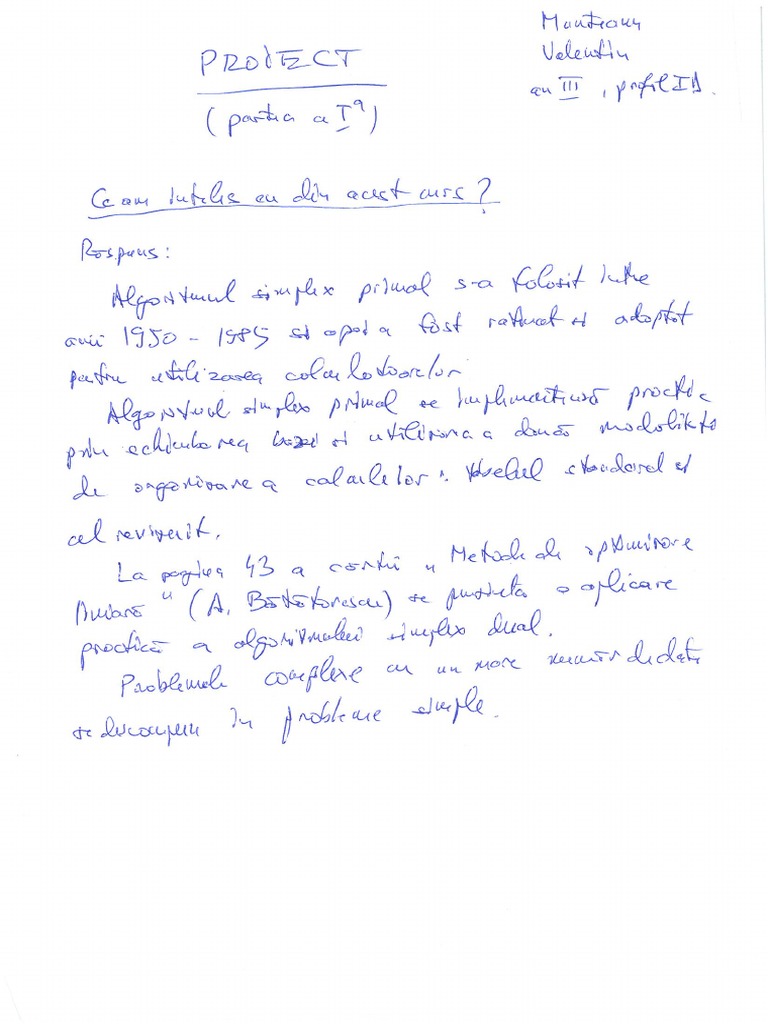 Munteanu
Valentin
an III, profil ID.
PROIECT
(partea a Iª)
Ce am înteles eu din acest curs?
Răspuns:
Algoritmul simplex primal s-a folosit între
anii 1950 - 1985 si apoi a fost rafinat si adaptat
pentru utilizarea calculatoarelor.
Algoritmul simplex primal se implementează practic
prin schimbarea bazei si utilizarea a două modalităti
de organizare a calculelor: tabelul standard si
cel revizuit.
La pagina 43 a cărtii "Metode de optimizare
liniară" (A. Bătătorescu) se prezintă o aplicare
practică a algoritmului simplex dual.
Problemele complexe cu un mare număr de date
se descompun în probleme simple.